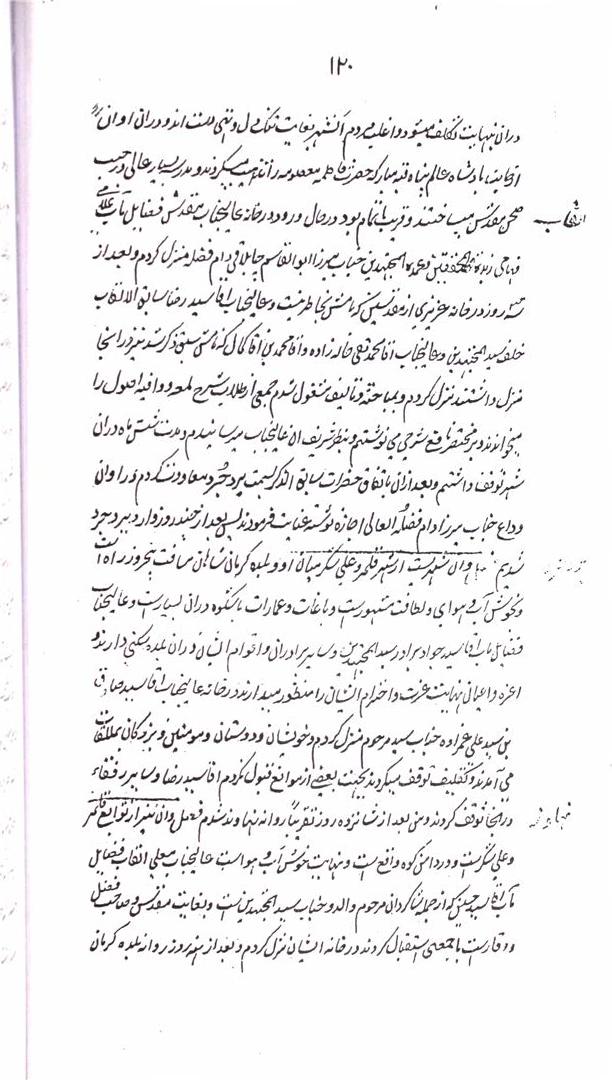 ۱۲۰
دران نهایت تکلف میشود و اغلب مردم آنشهر بغایت تنک دل و تهی دست اند و دران اوان
پادشاه عالم پناه قبه مبارکه حضرت فاطمه معصومه را تذهیب میکردند و مدرسه بسیار عالی در جنب
صحن مقدس میساختند و قریب باتمام بود در حال ورود در خانه عالیجناب مقدس فضایل مآب علامی
القاب
فهامی زبدة المحققین و عمدة المجتهدین جناب میرزا ابوالقاسم جابلاقی دام فضله منزل کردم و بعد از
سه روز در خانه عزیزی از مقدسین که نامش بخاطر نیست و عالیجناب آقا سید رضا سابق الالقاب
خلف سید المجتهدین و عالیجناب آقا محمد تقی خاله زاده و آقا محمد بن آقا کمال که نامش سبق ذکر شد نیز در انجا
منزل داشتند منزل کردم و بمباحثه و تالیف مشغول شدم جمعی از طلاب شرح لمعه و وافیه اصول را
میخواندند و بر مختصر نافع شرحی می نوشتم و بنظر شریف ان عالیجناب میرسانیدم و مدت شش ماه دران
شهر توقف داشتم و بعد ازان باتفاق حضرات سابق الذکر بسمت بروجرد معاودت کردم در اوان
وداع جناب میرزا دام فضله العالی اجازه نوشته عنایت فرمودند پس بعد از چند روز وارد بروجرد
شدیم و ان شهریست از شهر قلمرو علی شکر میان او و بلده کرمان شاهان مسافت پنجروز راه است
و بخوش آب و هوای و لطافت مشهورست و باغات و عمارات باشکوه دران بسیارست و عالیجناب
فضایل مآب آقا سید جواد برادر سید المجتهدین و سایر برادران و اقوام ایشان دران بلده سکنی دارند و
اعزه و اعیان نهایت عزت و احترام ایشان را منظور میدارند در خانه عالیجناب آقا سید صادق
بن سید علی عمزاده جناب سید مرحوم منزل کردم و خویشان و دوستان و مومنین و بزرگان بملاقات
می آمدند و تکلیف توقف میکردند بجهت بعضی از موانع قبول نکردم آقا سید رضا و سایر رفقاء
در انجا توقف کردند و من بعد از شانزده روز تقریباً روانه نهاوند شدم فصل و ان نیز از توابع قلمرو
نهاوند
و علی شکرست و در دامن کوه واقع است و نهایت خوش آب و هواست عالیجناب معلی القاب فضایل
مآب آقا سید حسین که از جمله شاکردان مرحوم والد و جناب سید المجتهدین است و بغایت مقدس و صاحب فضل
و وقارست با جمعی استقبال کردند در خانه ایشان منزل کردم و بعد از سه روز روانه بلده کرمان